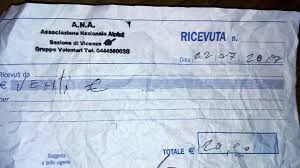 A.N.A.
Associazione Nazionale Alpini
Sezione di Vicenza
Gruppo Volontari Tel. 044456003
RICEVUTA n.
Data 22.07.2017
Ricevuti da
VENTI €
per
Soggetta
a bollo vigente
TOTALE € 20,00